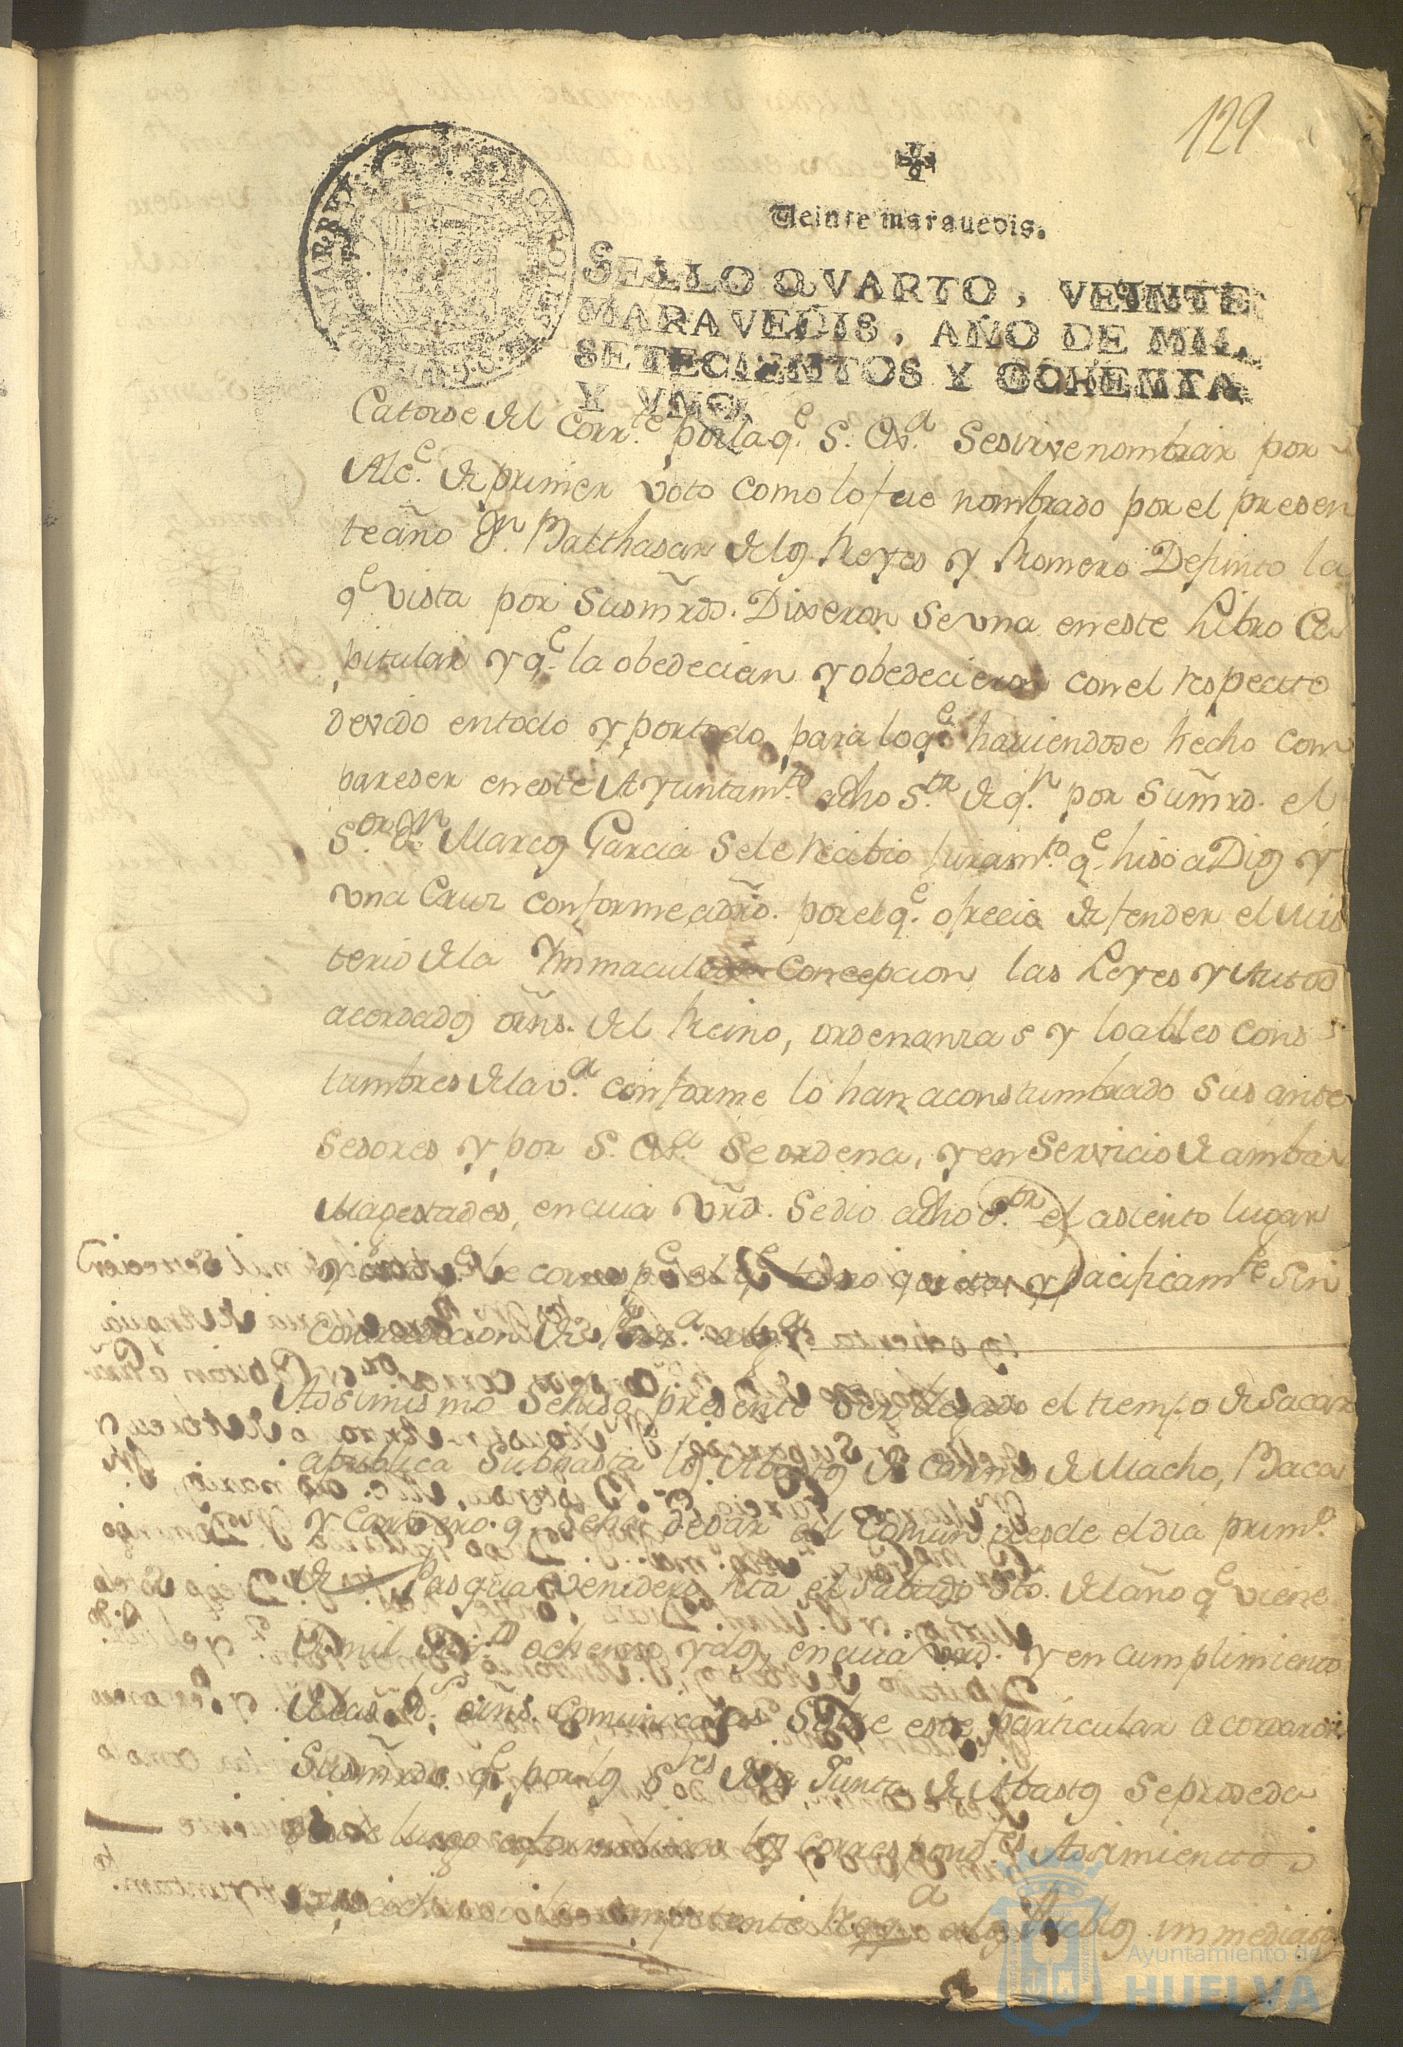 129
Veinte marauedis.
SELLO QVARTO, VEINTE
MARAVEDIS, AÑO DE MIL
SETECIENTOS Y OCHENTA
Y VNO.
Catorse del Corr.te por la q.e S. Ex.a se sirve nombrar por
Alc.e de primer voto como lo fue nombrado por el presen
te año Dn. Balthasar de los Reyes y Romero Defunto la
q.e vista por Susmrds. Dixeron se una en este Libro Ca
pitular y q.e la obedecian y obedecieron con el respecto
devido en todo y por todo, para lo q.e haviendose hecho com
pareser en este Ayuntam.to a dho S.or de q.n por Sumrd. el
S.or Dn. Marcos Garcia se le recibio juram.to q.e hiso a Dios y
una Cruz conforme a dro. por el q.e ofrecio defender el Mis
terio de la Ynmaculada Concepcion, las Leyes y Autos
acordados orns. del Reino, ordenanzas y loables cons
tumbres de la v.a conforme lo han aconstumbrado sus ante
sesores y por S. Ex.a se ordena, y en servicio de ambas
Magestades, en cuia vrd. se dio a dho S.or el asiento lugar
quieta y pacificam.te sin
contradicion de
Asimismo se hiso presente ser llegado el tiempo de sacar
a publica subhasta los Abastos de Carnes de Macho, Baca
y Carnero q.e se ha de dar al Comun desde el dia prim.o
de Pasqua venidero hta el Sabado Sto. del año q.e viene
de mil ochenta y dos, en cuia vrd. y en cumplimiento
de las orns. Comunicadas sobre este particular acordaron
Susmrds. q.e por los S.res de la Junta de Abastos se proseda
desde luego a formalisar los correspond.tes
a los Pueblos immediatos
Ayuntamiento de
HUELVA